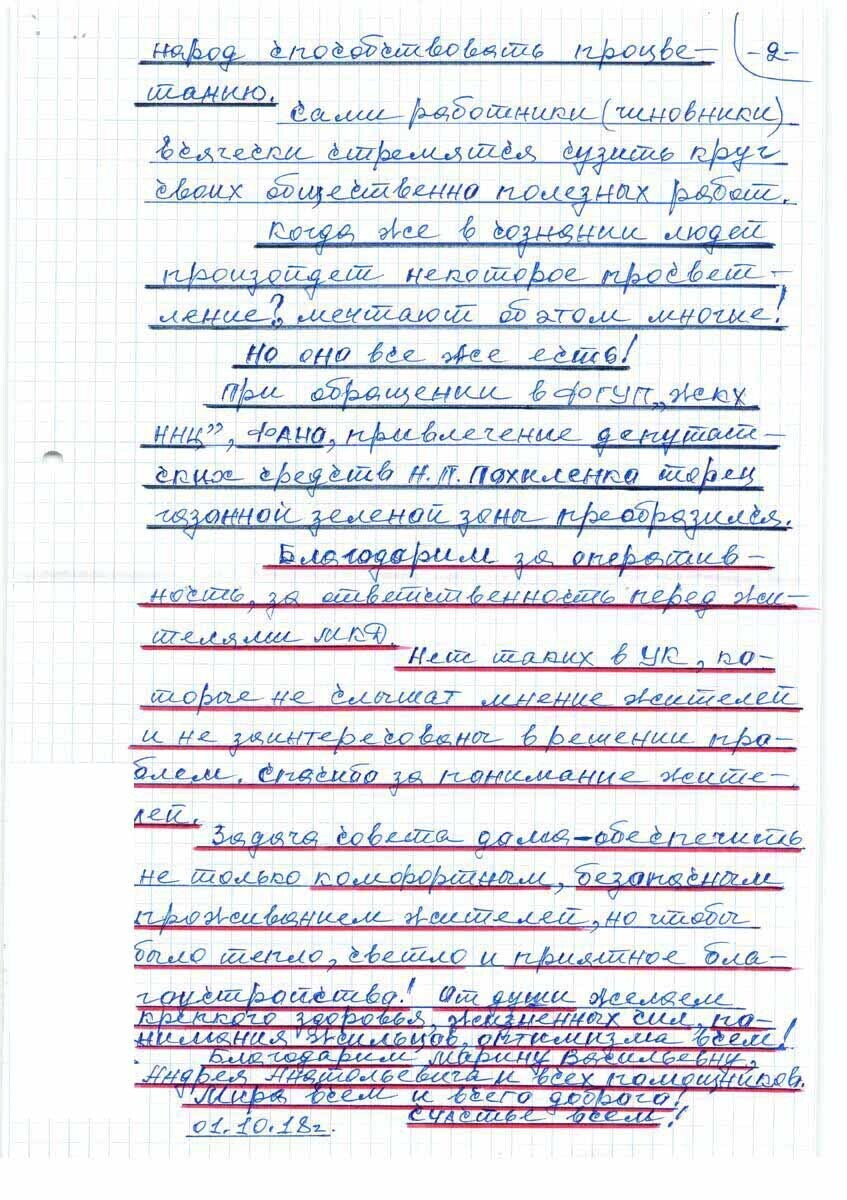 -2-
народ способствовать процве-
танию.
Сами работники (чиновники)
всячески стремятся сузить круг
своих общественно полезных работ.
Когда же в сознании людей
произойдет некоторое просвет-
ление? мечтают об этом многие!
Но оно все же есть!
При обращении в ФГУП „ЖКХ
ННЦ”, ФАНО, привлечение депутат-
ских средств Н.П. Похиленка торец
газонной зеленой зоны преобразился.
Благодарим за оператив-
ность, за ответственность перед жи-
телями МКД.
Нет таких в УК, ко-
торые не слышат мнение жителей
и не заинтересованы в решении про-
блем. Спасибо за понимание жите-
лей.
Задача совета дома-обеспечить
не только комфортным, безопасным
проживанием жителей, но чтобы
было тепло, светло и приятное бла-
гоустройство! От души желаем
крепкого здоровья, жизненных сил, по-
нимания жильцов, оптимизма всем!
Благодарим Марину Васильевну,
Андрея Анатольевича и всех помощников.
Мира всем и всего доброго!
Счастье всем!
01.10.18г.